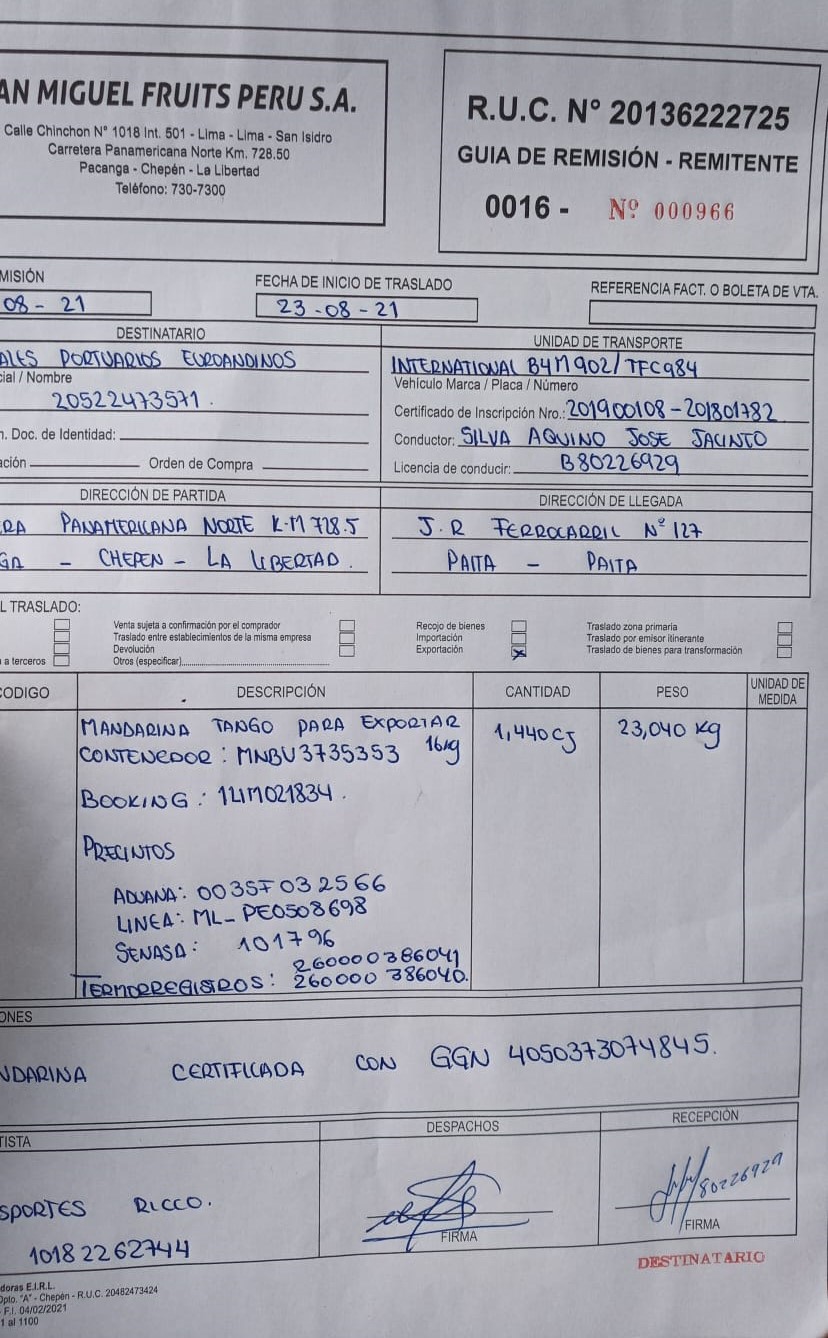 AN MIGUEL FRUITS PERU S.A.
Calle Chinchon N° 1018 Int. 501 - Lima - Lima - San Isidro
Carretera Panamericana Norte Km. 728.50
Pacanga - Chepén - La Libertad
Teléfono: 730-7300
R.U.C. N° 20136222725
GUIA DE REMISIÓN - REMITENTE
0016 - Nº 000966
MISIÓN
08 - 21
FECHA DE INICIO DE TRASLADO
23-08-21
REFERENCIA FACT. O BOLETA DE VTA.
DESTINATARIO
ALES PORTUARIOS EUROANDINOS
cial / Nombre
20522473571.
n. Doc. de Identidad:
ación Orden de Compra
UNIDAD DE TRANSPORTE
INTERNATIONAL B4M902/TFC984
Vehículo Marca / Placa / Número
Certificado de Inscripción Nro.: 201900108-201801782
Conductor: SILVA AQUINO JOSE JACINTO
Licencia de conducir: B80226929
DIRECCIÓN DE PARTIDA
RA PANAMERICANA NORTE K.M 728.5
GA - CHEPEN - LA LIBERTAD.
DIRECCIÓN DE LLEGADA
J.R FERROCARRIL Nº 127
PAITA - PAITA
L TRASLADO:
Venta sujeta a confirmación por el comprador
Traslado entre establecimientos de la misma empresa
Devolución
a terceros
Otros (especificar)
Recojo de bienes
Importación
Exportación X
Traslado zona primaria
Traslado por emisor itinerante
Traslado de bienes para transformación
CODIGO DESCRIPCIÓN CANTIDAD PESO UNIDAD DE MEDIDA
MANDARINA TANGO PARA EXPORTAR 1,440 CJ 23,040 Kg
CONTENEDOR : MNBU3735353 16kg
BOOKING : 1LIM021834.
PRECINTOS
ADUANA: 0035F032566
LINEA: ML-PE0508698
SENASA: 101796
260000386041
TERMORREGISTROS: 260000386040.
ONES
NDARINA CERTIFICADA CON GGN 4050373074845.
TISTA
SPORTES RICCO.
10182262744
DESPACHOS
FIRMA
RECEPCIÓN
80226929
FIRMA
DESTINATARIO
doras E.I.R.L.
Dpto. "A" - Chepén - R.U.C. 20482473424
F.I. 04/02/2021
1 al 1100